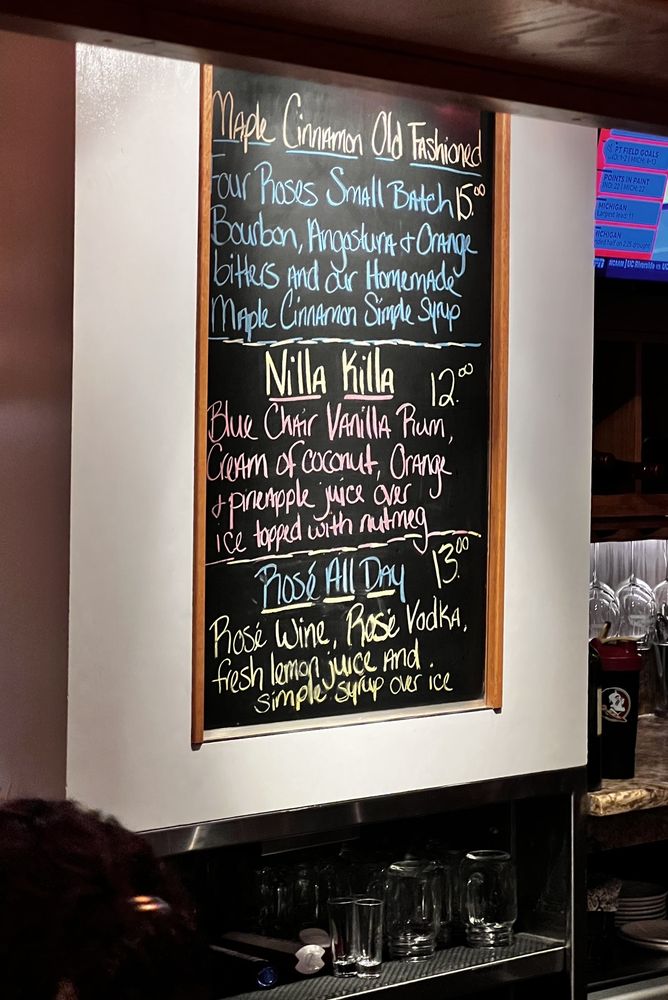 Maple Cinnamon Old Fashioned
Four Roses Small Batch 15.00
Bourbon, Angostura & Orange
bitters and our Homemade
Maple Cinnamon Simple Syrup
Nilla Killa 12.00
Blue Chair Vanilla Rum,
Cream of coconut, Orange
& pineapple juice over
ice topped with nutmeg
Rosé All Day 13.00
Rosé Wine, Rosé Vodka,
fresh lemon juice and
simple syrup over ice
PT FIELD GOALS
POINTS IN PAINT
IND: 22 | MICH: 22
MICHIGAN
Largest lead: 11
MICHIGAN